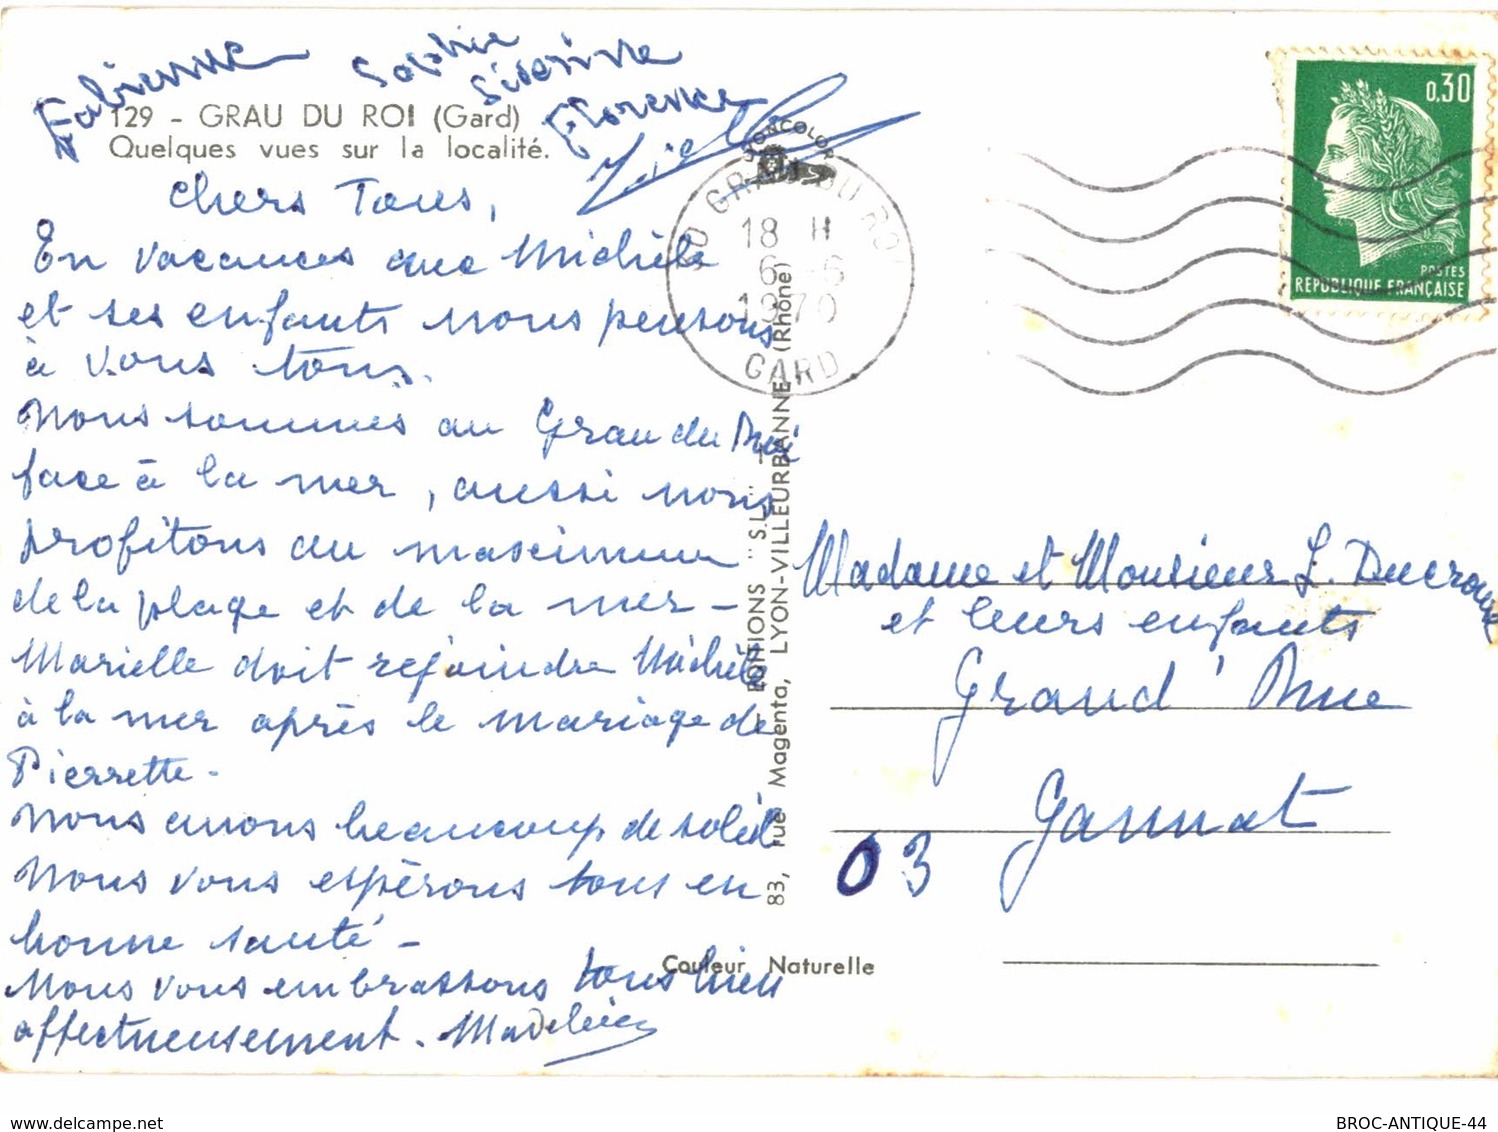 Fabienne Sophie
Séverine
Florence
129 - GRAU DU ROI (Gard)
Quelques vues sur la localité.
Chers Tous,
En vacances avec Michèle
et ses enfants nous pensons
à vous tous.
Nous sommes au Grau du Roi
face à la mer, aussi nous
profitons au maximum
de la plage et de la mer -
Marielle doit rejoindre Michèle
à la mer après le mariage de
Pierrette.
Nous avons beaucoup de soleil
Nous vous espérons tous en
bonne santé -
Nous vous embrassons tous bien
affectueusement. Madeleine
GRAU DU ROI
18 H
6 - 6
1970
GARD
0,30
POSTES
REPUBLIQUE FRANÇAISE
EDITIONS "S.L."
83, rue Magenta, LYON-VILLEURBANNE (Rhône)
Couleur Naturelle
Madame et Monsieur L. Ducroux
et leurs enfants
Grand' Rue
Gannat
03
www.delcampe.net
BROC-ANTIQUE-44